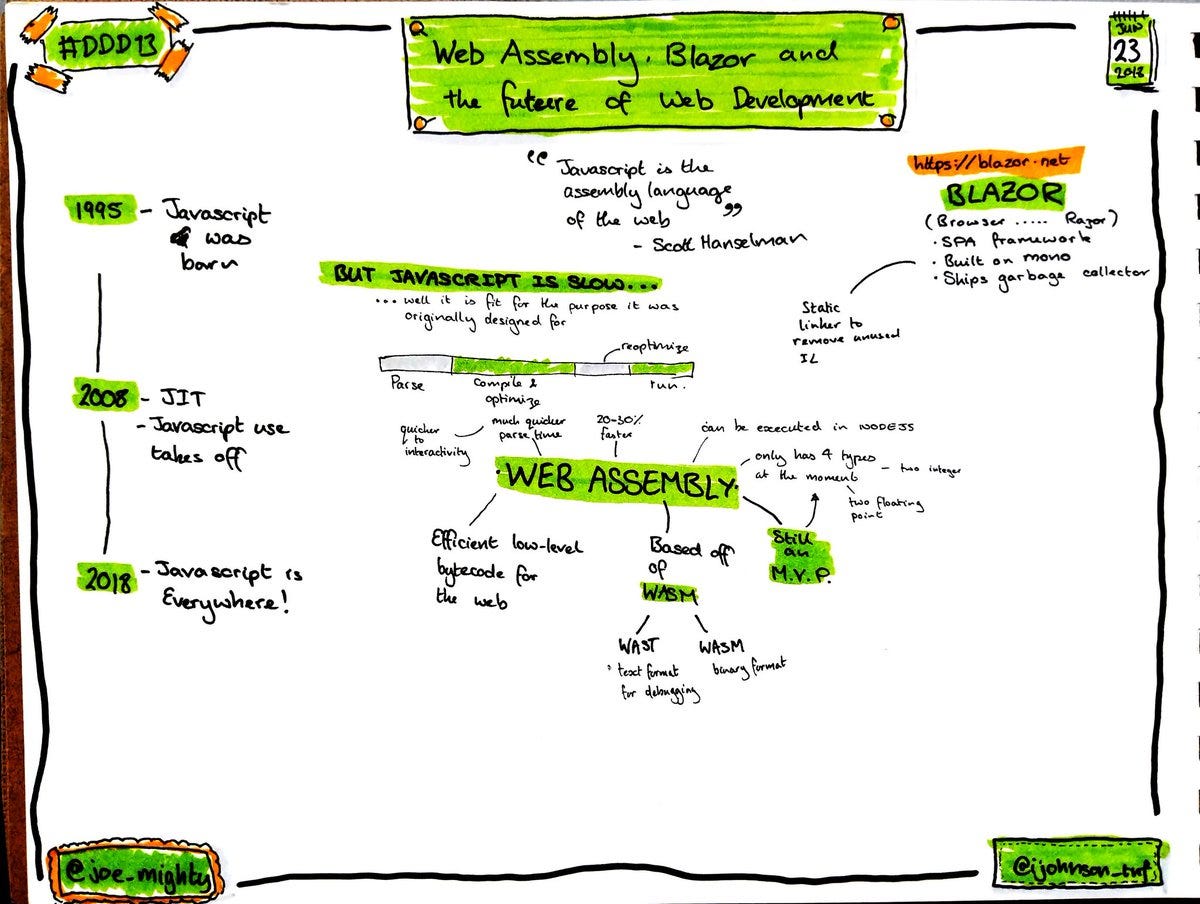 #DDD13
Web Assembly, Blazor and
the future of Web Development
JUN
23
2018
1995 - Javascript
was
born
2008 - JIT
- Javascript use
takes off
2018 - Javascript is
Everywhere!
“Javascript is the
assembly language
of the web”
- Scott Hanselman
BUT JAVASCRIPT IS SLOW...
... well it is fit for the purpose it was
originally designed for
reoptimize
Parse
compile &
optimize
run.
quicker
to
interactivity
much quicker
parse time
20-30%
faster
can be executed in NODEJS
WEB ASSEMBLY
only has 4 types
at the moment
- two integer
two floating
point
Still
an
M.V.P.
Efficient low-level
bytecode for
the web
Based off
of
WASM
WAST
text format
for debugging
WASM
binary format
https://blazor.net
BLAZOR
(Browser ..... Razor)
· SPA framework
· Built on mono
· Ships garbage collector
Static
linker to
remove unused
IL
@joe_mighty